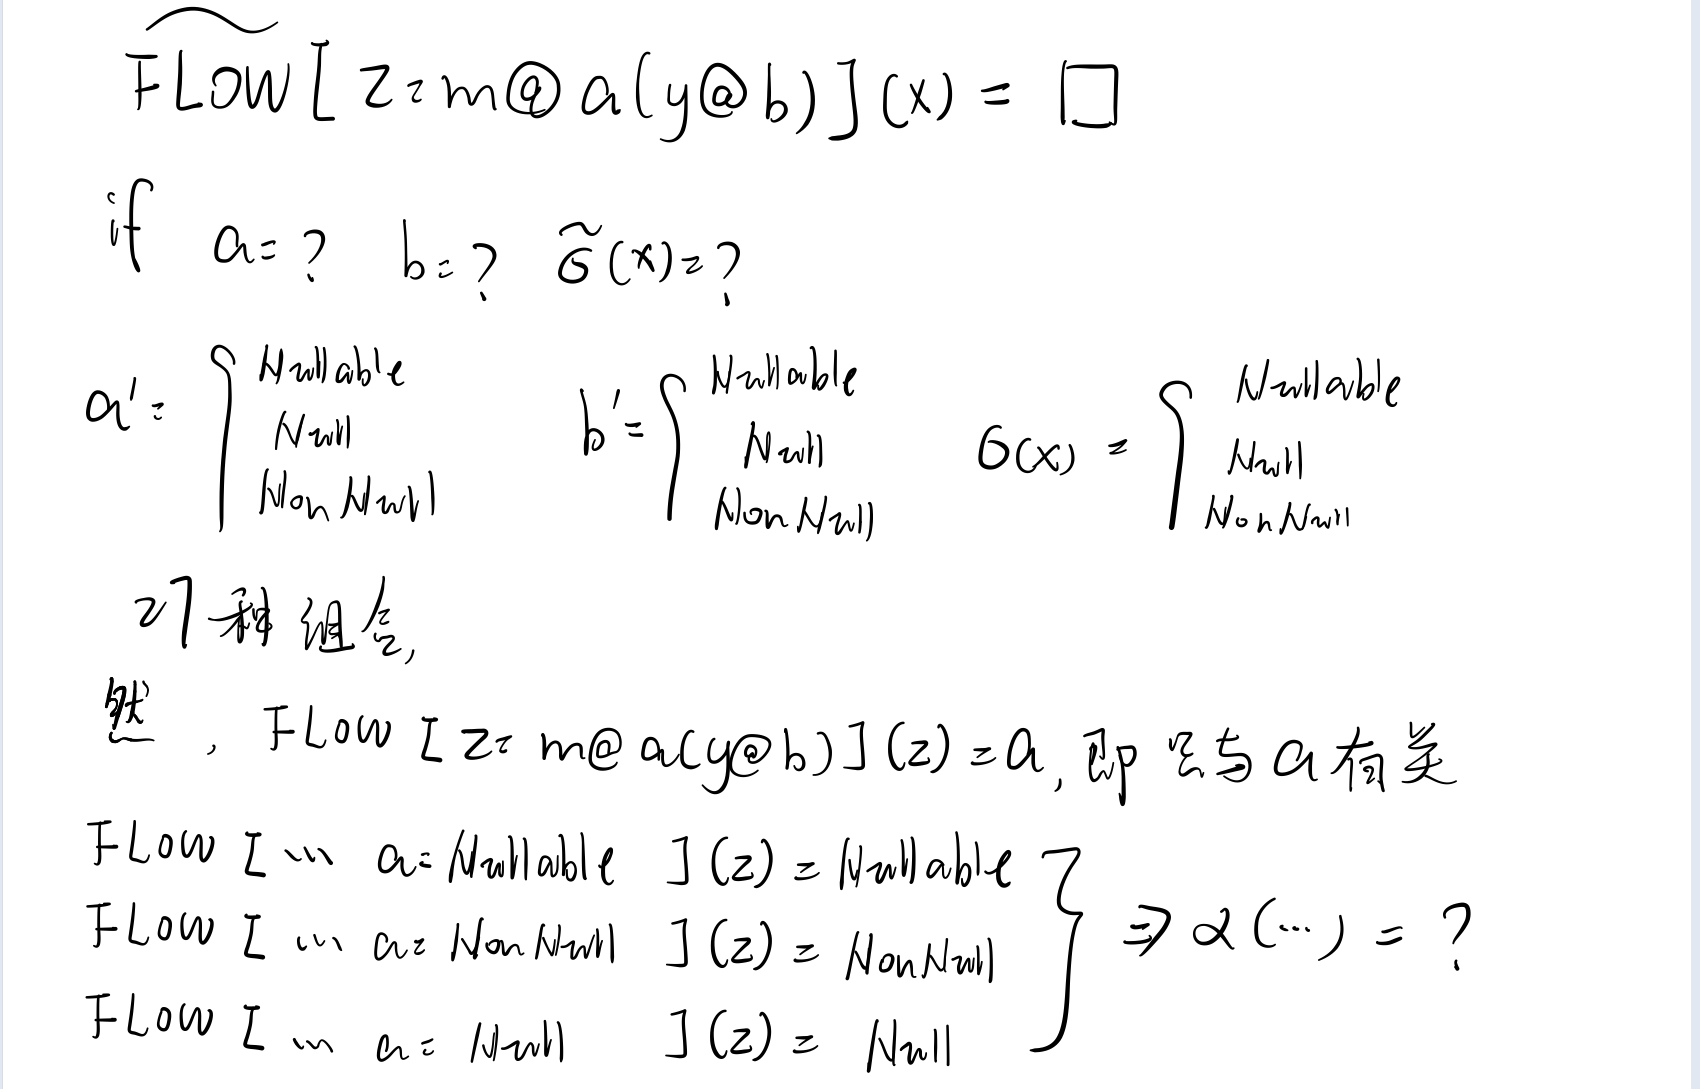 FLOW[z=m@a(y@b)](x) = □
if a=? b=? σ̃(x)=?
a'= { Nullable Null NonNull b'= { Nullable Null NonNull σ(x) = { Nullable Null NonNull
27种组合,
然, FLOW[z=m@a(y@b)](z)=a, 即只与a有关
FLOW[... a=Nullable ](z)=Nullable
FLOW[... a=NonNull ](z)=NonNull } ⇒ α(...) = ?
FLOW[... a=Null ](z)=Null